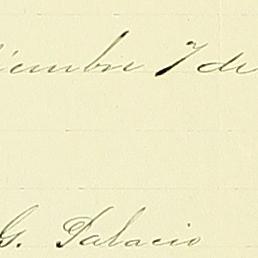 iembre 7 de
G. Palacio